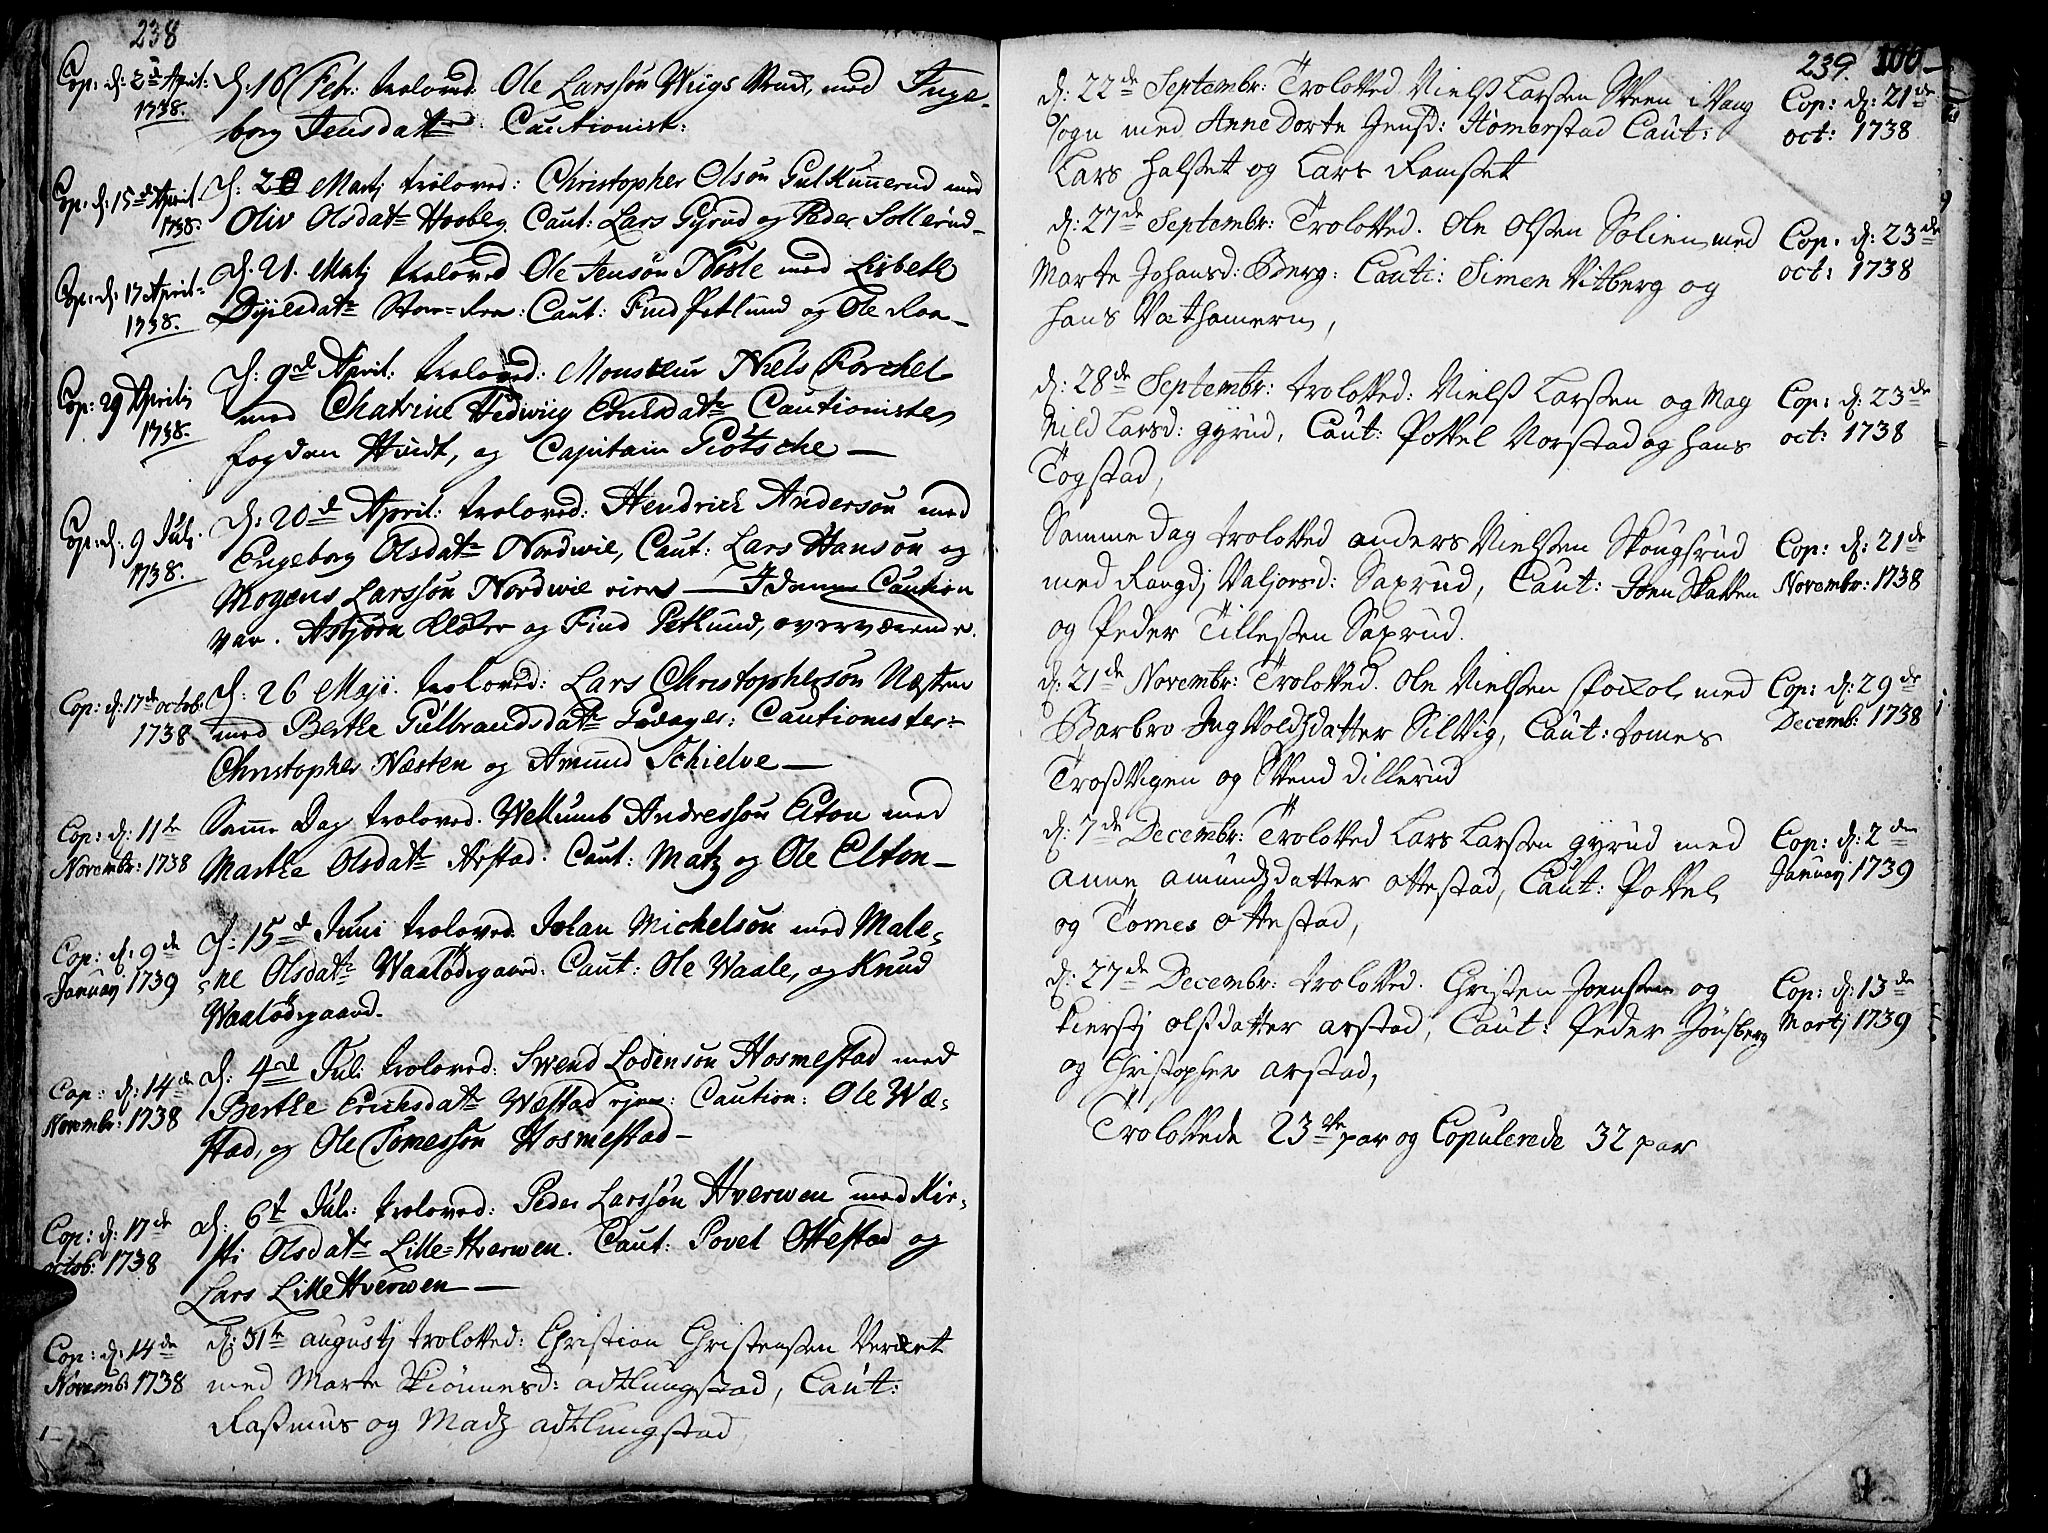 238
Cop: d: 2d April:
1738.
d: 16 Febr: troloved. Ole Larssøn Wiigs Brud, med Inge-
borg Jensdatr. Cautionist:
Cop: d: 15d April
1738.
d: 20 Martj troloved: Christopher Olsøn Gulkunnerud med
Oliv Olsdatr Hooberg. Caut: Lars Gyrud og Peder Sollerud
Cop: d: 17 April
1738.
d. 21. Martj troloved Ole Jensøn Næsle med Lisbeth
Dyresdatr Stor=Ree: Caut: Find Petlund og Ole Ree
Cop: 29 Aprilis
1738.
d: 9d April: troloved: Monsieur Niels Forchel
med Chatrine Hedwiig Carlsdatr Cautionister
fogden Hvidt, og Capitain Gøtsche
Cop: d: 9 Juli
1738.
d: 20d April: troloved: Hendrich Andersøn med
Engeborg Olsdatr Nordvie, Caut: Lars Hansøn og
Mogens Larssøn Nordvie eier I denne Caution
var. Asbjørn Kløter og Find Petlund, overværende.
Cop: d: 17de octob:
1738
d: 26 Maji. troloved: Lars Christophersøn Næsten
med Berthe Gulbrandsdatr Gaager: Cautionister:
Christopher Næsten og Amund Schielve
Cop: d: 11te
Novembr: 1738
Samme Dag troloved. Wellumb Andressøn Elton med
Marthe Olsdatr Arstad. Caut: Matz og Ole Elton
Cop: d: 9de
Januarj 1739
d: 15d Juni troloved. Johan Michelsøn med Male-
ne Olsdatr Waalødegaard. Caut: Ole Waale, og Knud
Waalødegaard.
Cop: d: 14de
Novembr: 1738
d: 4d Juli troloved: Swend Lodensøn Hosmestad med
Berthe Erichsdatr Wæstad ejer: Caution: Ole Wæ-
stad, og Ole Tomessøn Hosmestad
Cop: d: 17de
octob: 1738
d: 6t Juli: troloved: Peder Larssøn Hverwen med Kir-
sti Olsdatr Lille=Hverwen. Caut: Povel Ottestad og
Lars Lille Hverwen
Cop: d: 14de
Novemb: 1738
d: 31te augustj trolowed: Christian Christenssen Verket
med Marte Skiønnesd: adtlungstad, Caut:
Rasmus og Madz adtlungstad
239. 100
d: 22de Septembr: Trolowed Niels Larssen Steen i Wang
sogn med Anne Dorte Jensd: Homerstad Caut:
Lars Halset og Lars Ramset
Cop: d: 21de
oct: 1738
d: 27de Septembr: Trolowed. Ole Olssen Solien, med
Marte Johansd: Berg: Cauti: Simen Vitberg og
Hans Væthamern,
Cop. d: 23de
oct: 1738
d: 28de Septembr: trolowed: Niels Larssen og Mag
nild Larsd: gyrud, Caut: Powel Norstad og Hans
Togstad,
Cop: d: 23de
oct: 1738
Samme dag trolowed anders Nielssen Skougsrud
med Rangdj Valjorsd: Saxrud, Caut: Joen Skatten
og Peder Tillessen Saxrud.
Cop: d: 21de
Novembr: 1738
d: 21de Novembr: Trolowed. Ole Nielssen med
Barbro Ingvoldsdatter Silwig, Caut: tomes
Trosvigen og Svend Dillerud
Cop: d: 29de
Decemb: 1738
d: 7de Decembr: Trolowed Lars Larssen gyrud med
anne amundsdatter ottestad, Caut: Powel
og Tomes ottestad,
Cop: d: 2den
Januarj 1739
d: 27de Decembr: trolowed. Christen Joenssen og
Kierstj olsdatter arstad, Caut: Peder Jønsberg
og Christopher arstad,
Cop: d: 13de
Martj 1739
Trolowede 23tve par og Copulerede 32 par